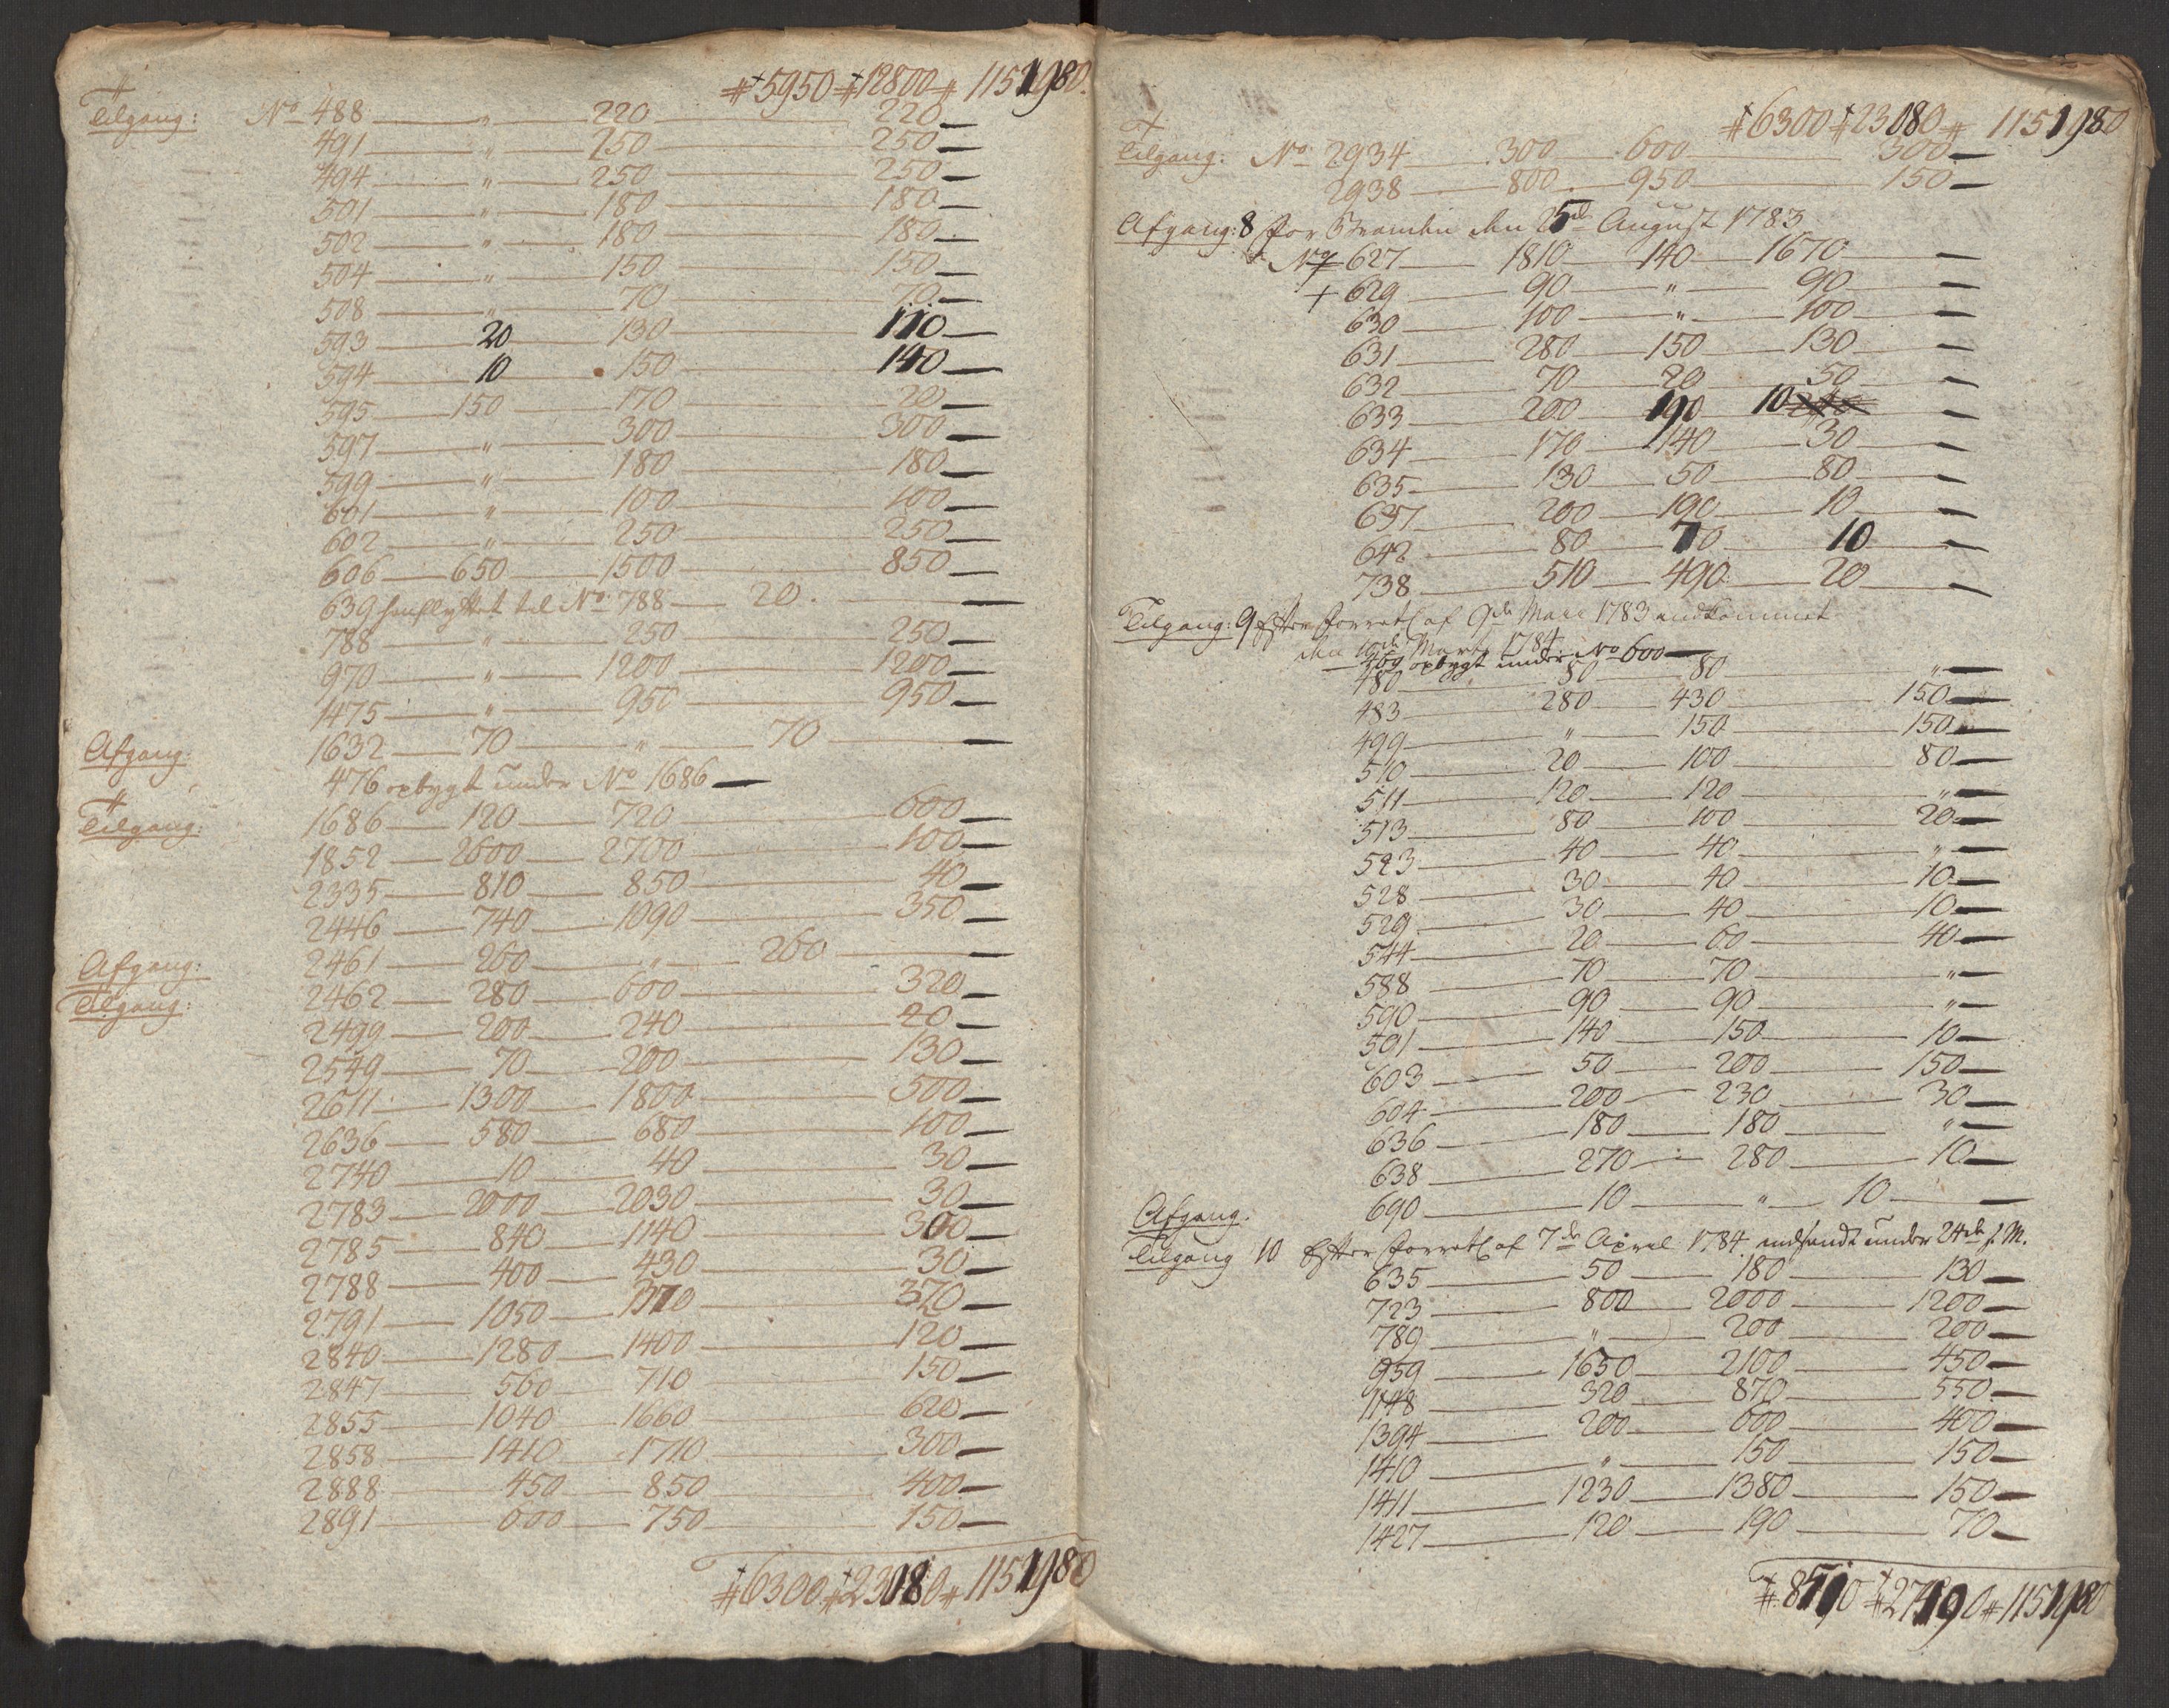 # 5950 # 12800 # 1151980.
Tilgang: No 488 — " — 220 — 220 —
491 — " — 250 — 250 —
494 — " — 250 — 250 —
501 — " — 180 — 180 —
502 — " — 180 — 180 —
504 — " — 150 — 150 —
508 — " — 70 — 70 —
593 — 20 — 130 — 110 —
594 — 10 — 150 — 140 —
595 — 150 — 170 — 20 —
597 — " — 300 — 300 —
599 — " — 180 — 180 —
601 — " — 100 — 100 —
602 — " — 250 — 250 —
606 — 650 — 1500 — 850 —
639 henflyttet til No 788 — 20. —
788 — " — 250 — 250 —
970 — " — 1200 — 1200 —
1475 — " — 950 — 950 —
Afgang: 1632 — 70 — " — 70 —
476 opbygt under No 1686 —
Tilgang: 1686 — 120 — 720 — 600 —
1852 — 2600 — 2700 — 100 —
2335 — 810 — 850 — 40 —
2446 — 740 — 1090 — 350 —
Afgang: 2461 — 260 — " — 260 —
Tilgang: 2462 — 280 — 600 — 320 —
2499 — 200 — 240 — 40 —
2549 — 70 — 200 — 130 —
2611 — 1300 — 1800 — 500 —
2636 — 580 — 680 — 100 —
2740 — 10 — 40 — 30 —
2783 — 2000 — 2030 — 30 —
2785 — 840 — 1140 — 300 —
2788 — 400 — 430 — 30 —
2791 — 1050 — 1370 — 320 —
2840 — 1280 — 1400 — 120 —
2847 — 560 — 710 — 150 —
2855 — 1040 — 1660 — 620 —
2858 — 1410 — 1710 — 300 —
2888 — 450 — 850 — 400 —
2891 — 600 — 750 — 150 —
# 6300 # 23080 # 1151980
# 6300 # 23080 # 1151980
Tilgang: No 2934 — 300 — 600 — 300 —
2938 — 800 — 950 — 150 —
Afgang: 8 for Branden den 25de August 1783
No 627 — 1810 — 140 — 1670 —
+ 629 — 90 — " — 90 —
630 — 100 — " — 100 —
631 — 280 — 150 — 130 —
632 — 70 — 20 — 50 —
633 — 200 — 190 10 —
634 — 170 — 140 — 30 —
635 — 130 — 50 — 80 —
637 — 200 — 190 — 10 —
642 — 80 — 70 — 10 —
738 — 510 — 490 — 20 —
Tilgang: 9 Efter Forretl af 9de 1783 indkommet
den 10de Marti 1784
469 opbygt under No 600 —
480 — 80 — 80 — " —
483 — 280 — 430 — 150 —
499 — " — 150 — 150 —
510 — 20 — 100 — 80 —
511 — 120 — 120 — " —
513 — 80 — 100 — 20 —
523 — 40 — 40 — " —
528 — 30 — 40 — 10 —
529 — 30 — 40 — 10 —
544 — 20 — 60 — 40 —
588 — 70 — 70 — " —
590 — 90 — 90 — " —
591 — 140 — 150 — 10 —
603 — 50 — 200 — 150 —
604 — 200 — 230 — 30 —
636 — 180 — 180 — " —
638 — 270 — 280 — 10 —
Afgang. 690 — 10 — " — 10 —
Tilgang 10 Efter Forretl af 7de April 1784 indsendt under 24de s. M.
635 — 50 — 180 — 130 —
723 — 800 — 2000 — 1200 —
789 — " — 200 — 200 —
959 — 1650 — 2100 — 450 —
1148 — 320 — 870 — 550 —
1394 — 200 — 600 — 400 —
1410 — " — 150 — 150 —
1411 — 1230 — 1380 — 150 —
1427 — 120 — 190 — 70 —
# 8510 # 27490 # 1151980